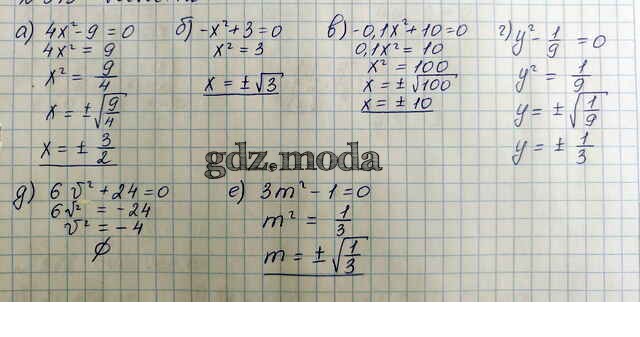 а) 4x² - 9 = 0
4x² = 9
x² = 9/4
x = ± √(9/4)
x = ± 3/2
б) -x² + 3 = 0
x² = 3
x = ± √3
в) -0,1x² + 10 = 0
0,1x² = 10
x² = 100
x = ± √100
x = ± 10
г) y² - 1/9 = 0
y² = 1/9
y = ± √(1/9)
y = ± 1/3
gdz.moda
д) 6v² + 24 = 0
6v² = -24
v² = -4
∅
е) 3m² - 1 = 0
m² = 1/3
m = ± √(1/3)